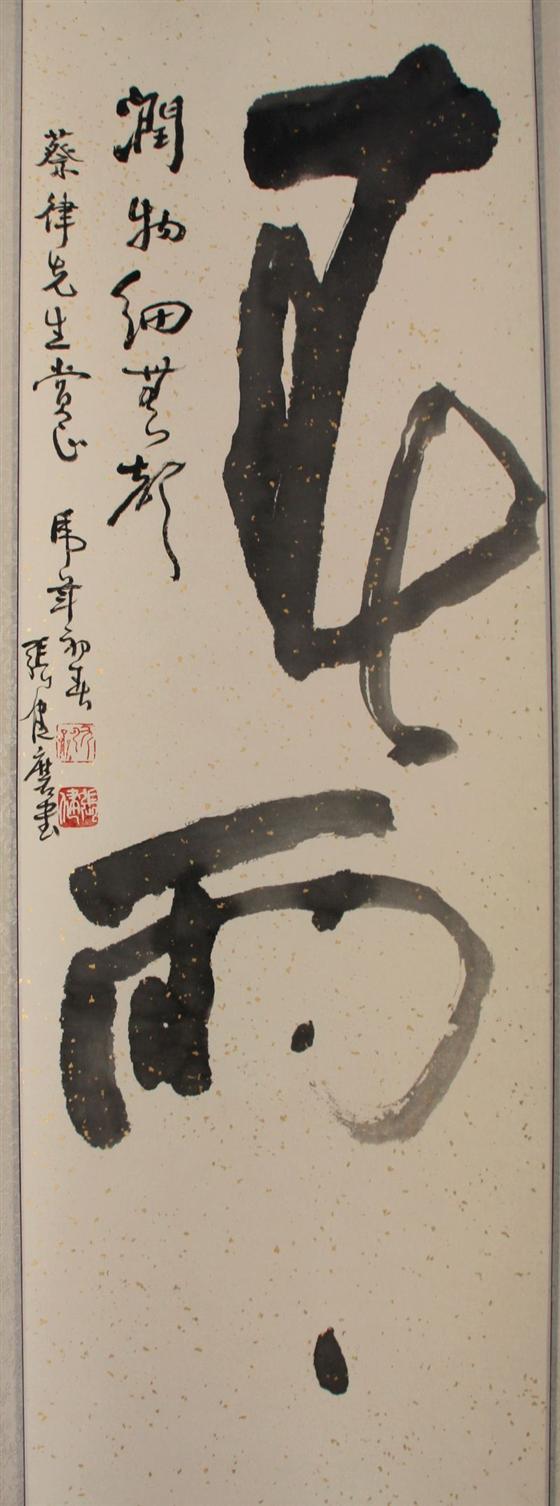 雨
潤物細無聲
蔡律先生賞正 馬年初春
張書